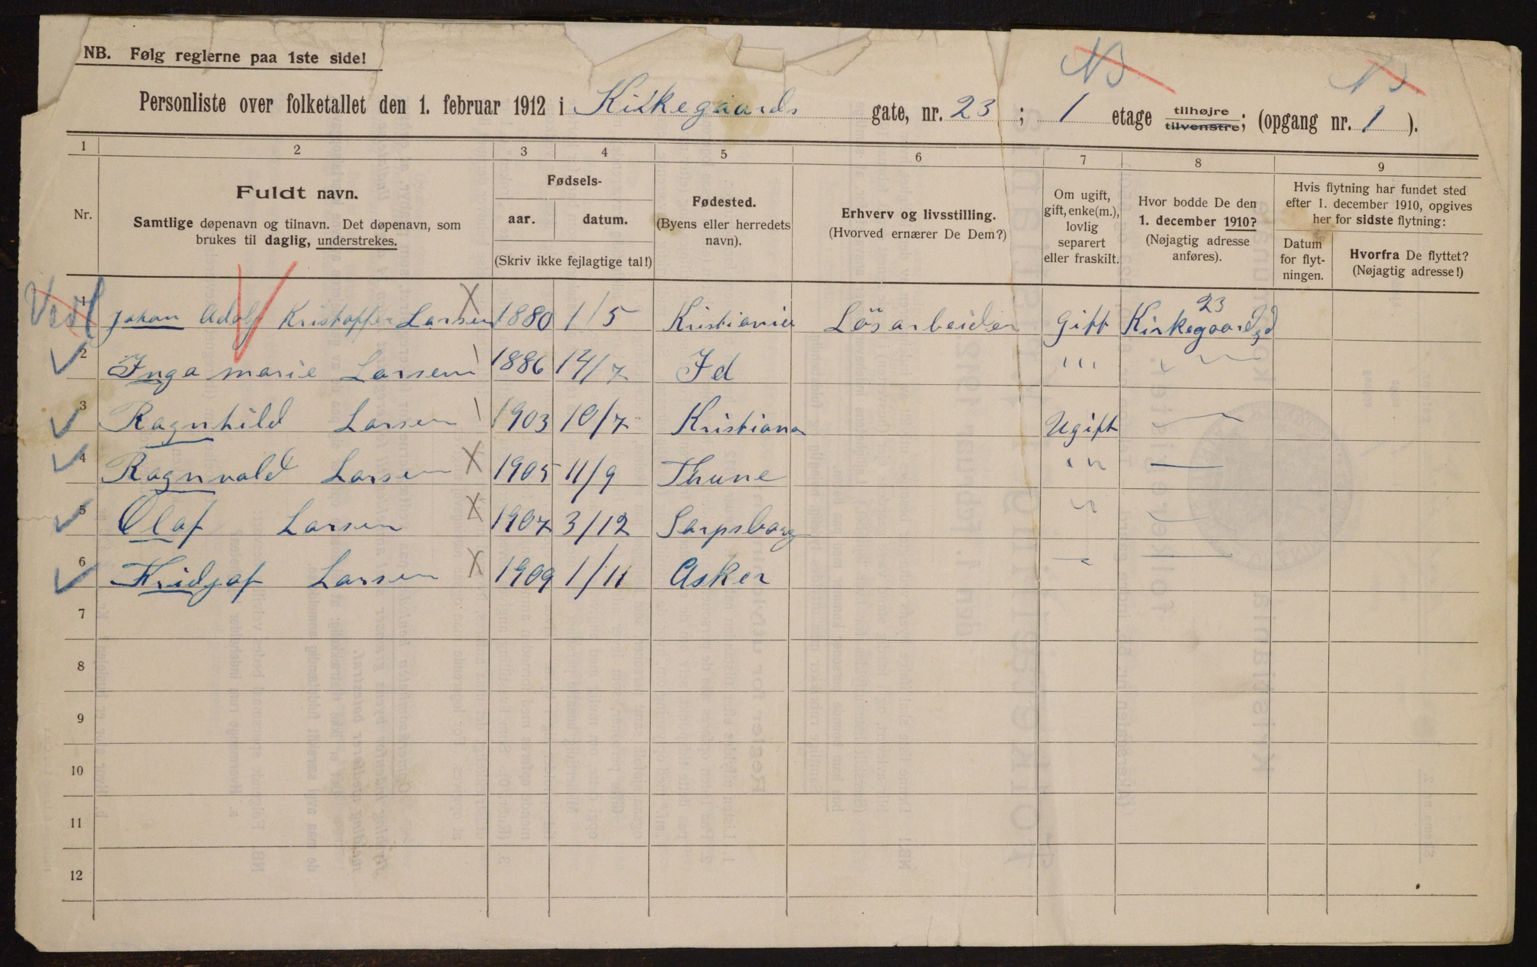 NB. Følg reglerne paa 1ste side!
NB
Personliste over folketallet den 1. februar 1912 i Kirkegaards gate, nr. 23 ; 1 etage tilhøjre tilvenstre; (opgang nr. 1 ).
1 2 3 4 5 6 7 8 9
Nr.
Fuldt navn.
Samtlige døpenavn og tilnavn. Det døpenavn, som
brukes til daglig, understrekes.
Fødsels-
aar. datum.
(Skriv ikke fejlagtige tal!)
Fødested.
(Byens eller herredets
navn).
Erhverv og livsstilling.
(Hvorved ernærer De Dem?)
Om ugift,
gift, enke(m.),
lovlig
separert
eller fraskilt.
Hvor bodde De den
1. december 1910?
(Nøjagtig adresse
anføres).
Hvis flytning har fundet sted
efter 1. december 1910, opgives
her for sidste flytning:
Datum
for flyt-
ningen.
Hvorfra De flyttet?
(Nøjagtig adresse!)
1 Johan Adolf Kristoffer Larsen X 1880 1/5 Kristiania Lösarbeider Gift Kirkegaardgd 23
2 Inga Marie Larsen 1886 12/7 Id " "
3 Ragnhild Larsen 1903 10/7 Kristiana Ugift —
4 Ragnvald Larsen X 1905 11/9 Thune " —
5 Olaf Larsen X 1907 3/12 Sarpsborg " —
6 Fridjof Larsen X 1909 1/11 Asker " —
7
8
9
10
11
12